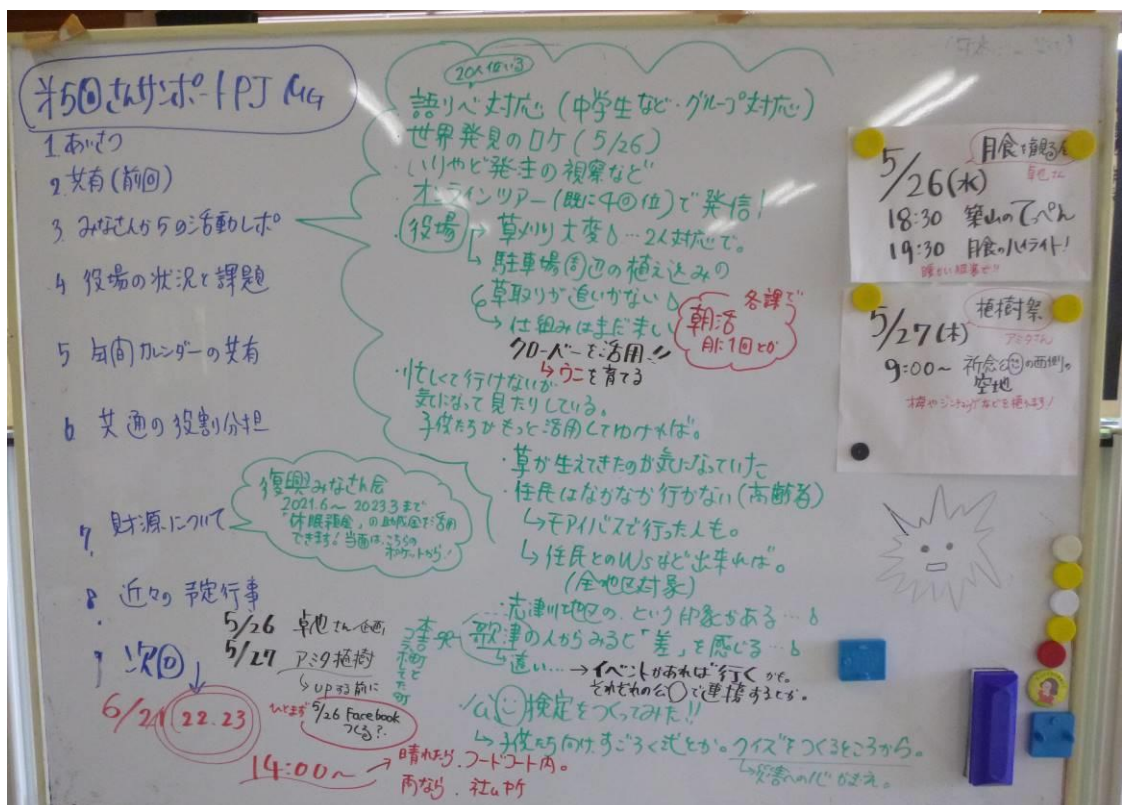 第5回さんサンポートPJ MG
1. あいさつ
2. 共有(前回)
3. みなさんからの活動レポ
4 役場の状況と課題
5 年間カレンダーの共有
6. 共通の役割分担
7. 財源について
8. 近々の予定行事
5/26 卓也さん企画
5/27 アミタ植樹
↳ UPする前に
ひとまず 5/26 Facebook
つくる?
次回
6/21 22.23
14:00〜 → 晴れたら、フードコート内。
雨なら、
復興みなさん会
2021.6〜2023.3まで
「休眠預金」の助成金を活用
できます!当面は、こちらの
ポケットから!
20人位いる
語りべ対応(中学生など・グループ対応)
世界発見のロケ(5/26)
・いりやど発注の視察など
オンラインツアー(既に4回位)で発信!
・役場 → 草刈り大変…2人対応で。
↳ 駐車場周辺の植え込みの
草取りが追いかない
→ 仕組みはまだ来い
各課で
朝活
月に1回とか
クローバーを活用!!
↳ ウニを育てる
・忙しくて行けないが
気になって見たりしている。
子供たちがもっと活用してゆければ。
・草が生えてきたのが気になっていた
・住民はなかなか行かない(高齢者)
↳ モアイバスで行った人も。
↳ 住民とのWsなど出来れば。
(全地区対象)
・志津川地区の、という印象がある…
歌津の人からみると「差」を感じる…
遠い… → イベントがあれば行くかも。
それぞれの公○で連携するとか。
検定をつくってみた!!
↳ 子供たち向け、すごろく式とか。クイズをつくるところから。
↳ 災害への心がまえ。
月食を観る会
卓也さん
5/26(水)
18:30 築山のてっぺん
19:30 月食のハイライト!
植樹祭
アミタさん
5/27(木)
9:00〜 祈念公の西側の
空地